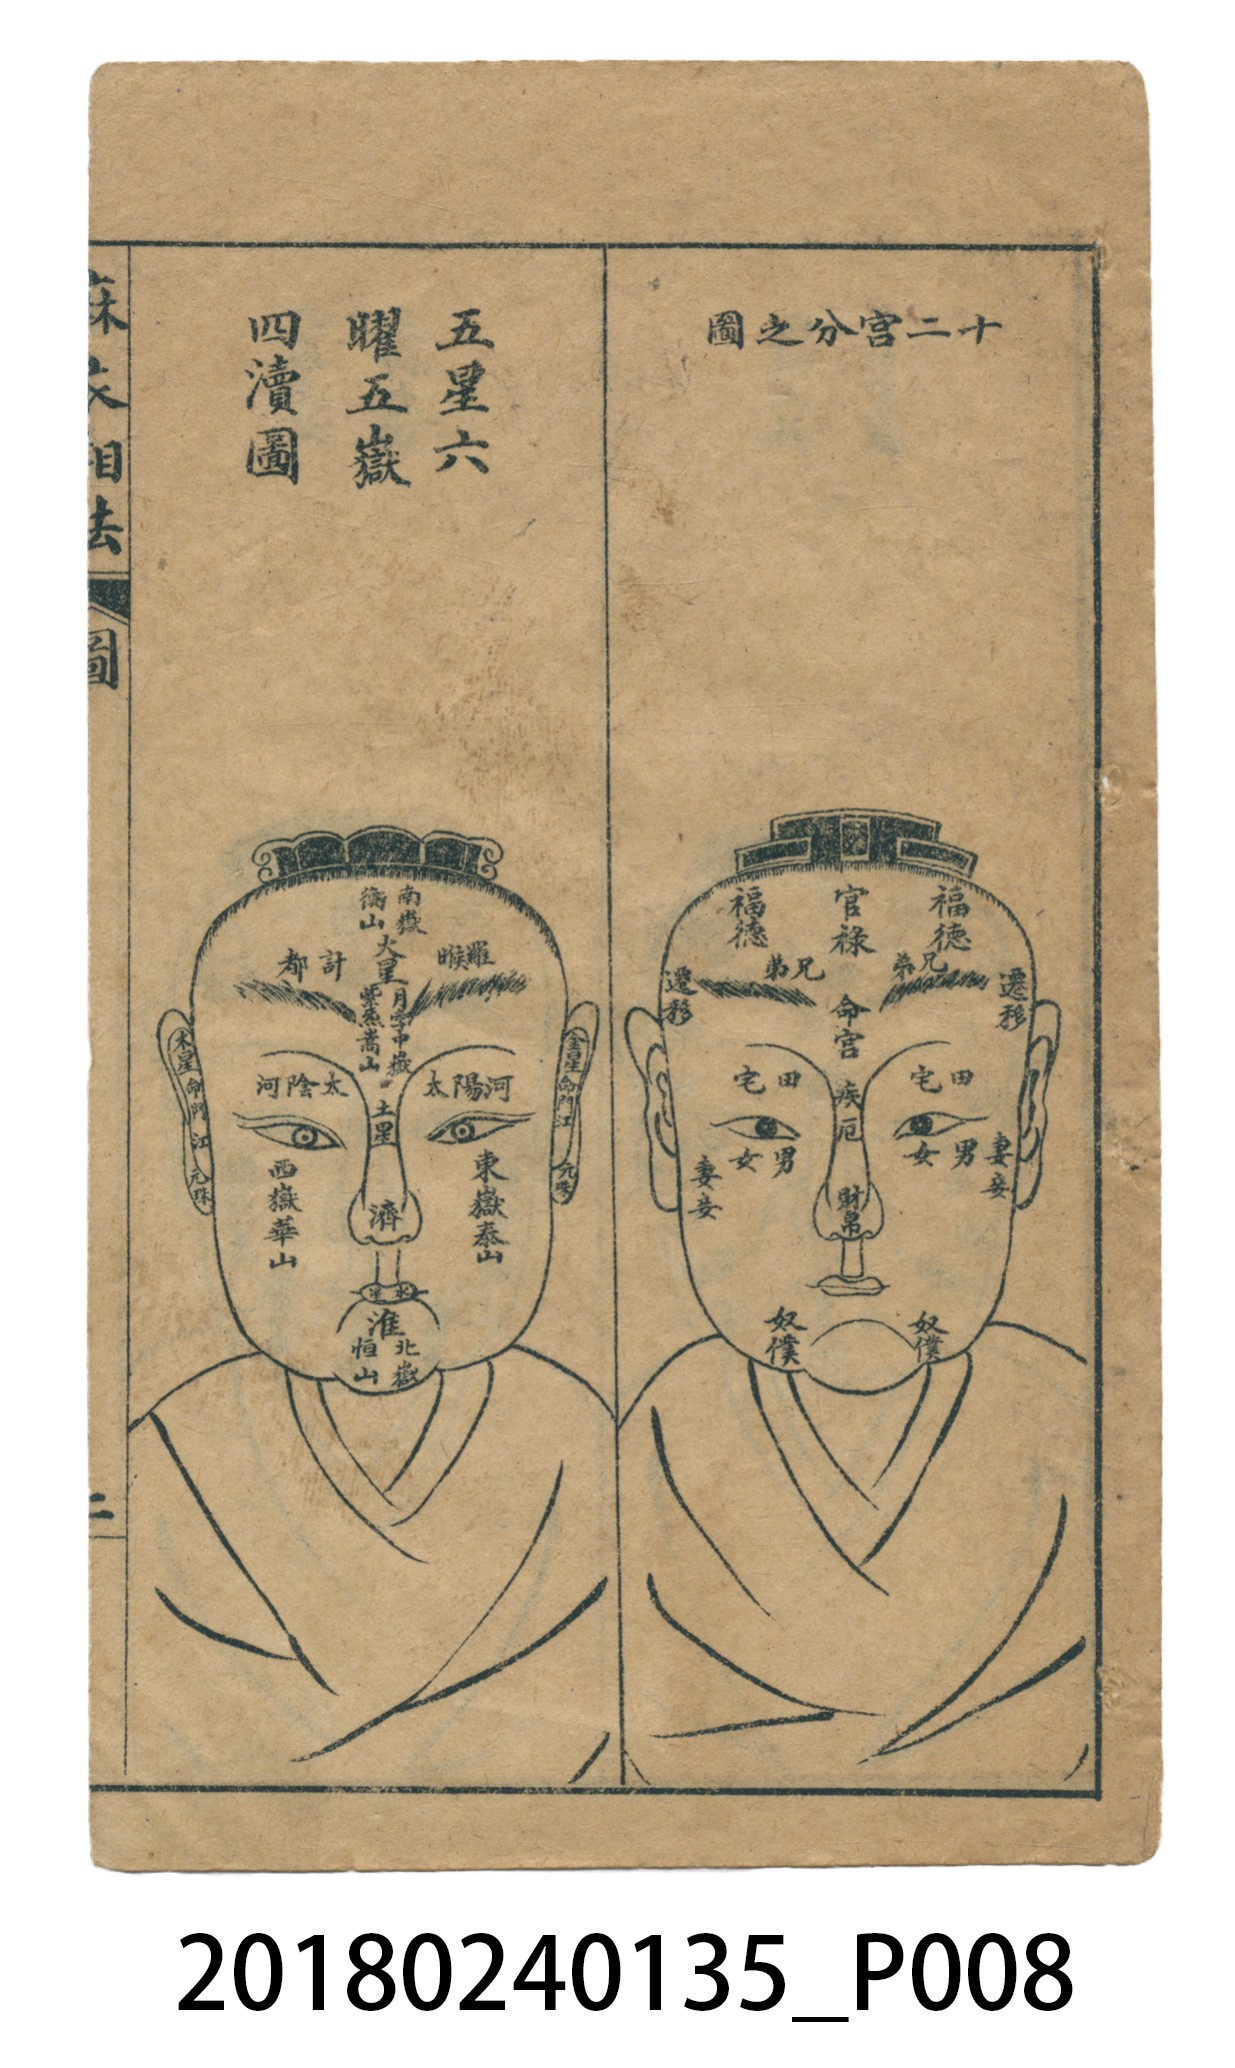 十二宮分之圖
官祿
福德
福德
兄弟
兄弟
遷移
遷移
命宮
田宅
田宅
疾厄
男女
男女
妻妾
妻妾
財帛
奴僕
奴僕
五星六
曜五嶽
四瀆圖
南嶽
衡山
火星
羅睺
計都
月孛中嶽
紫炁嵩山
太陽河
太陰河
土星
金星命門江元珠
木星命門江元珠
東嶽泰山
西嶽華山
濟
水星
淮
北嶽
恒山
麻衣相法
圖
二
20180240135_P008